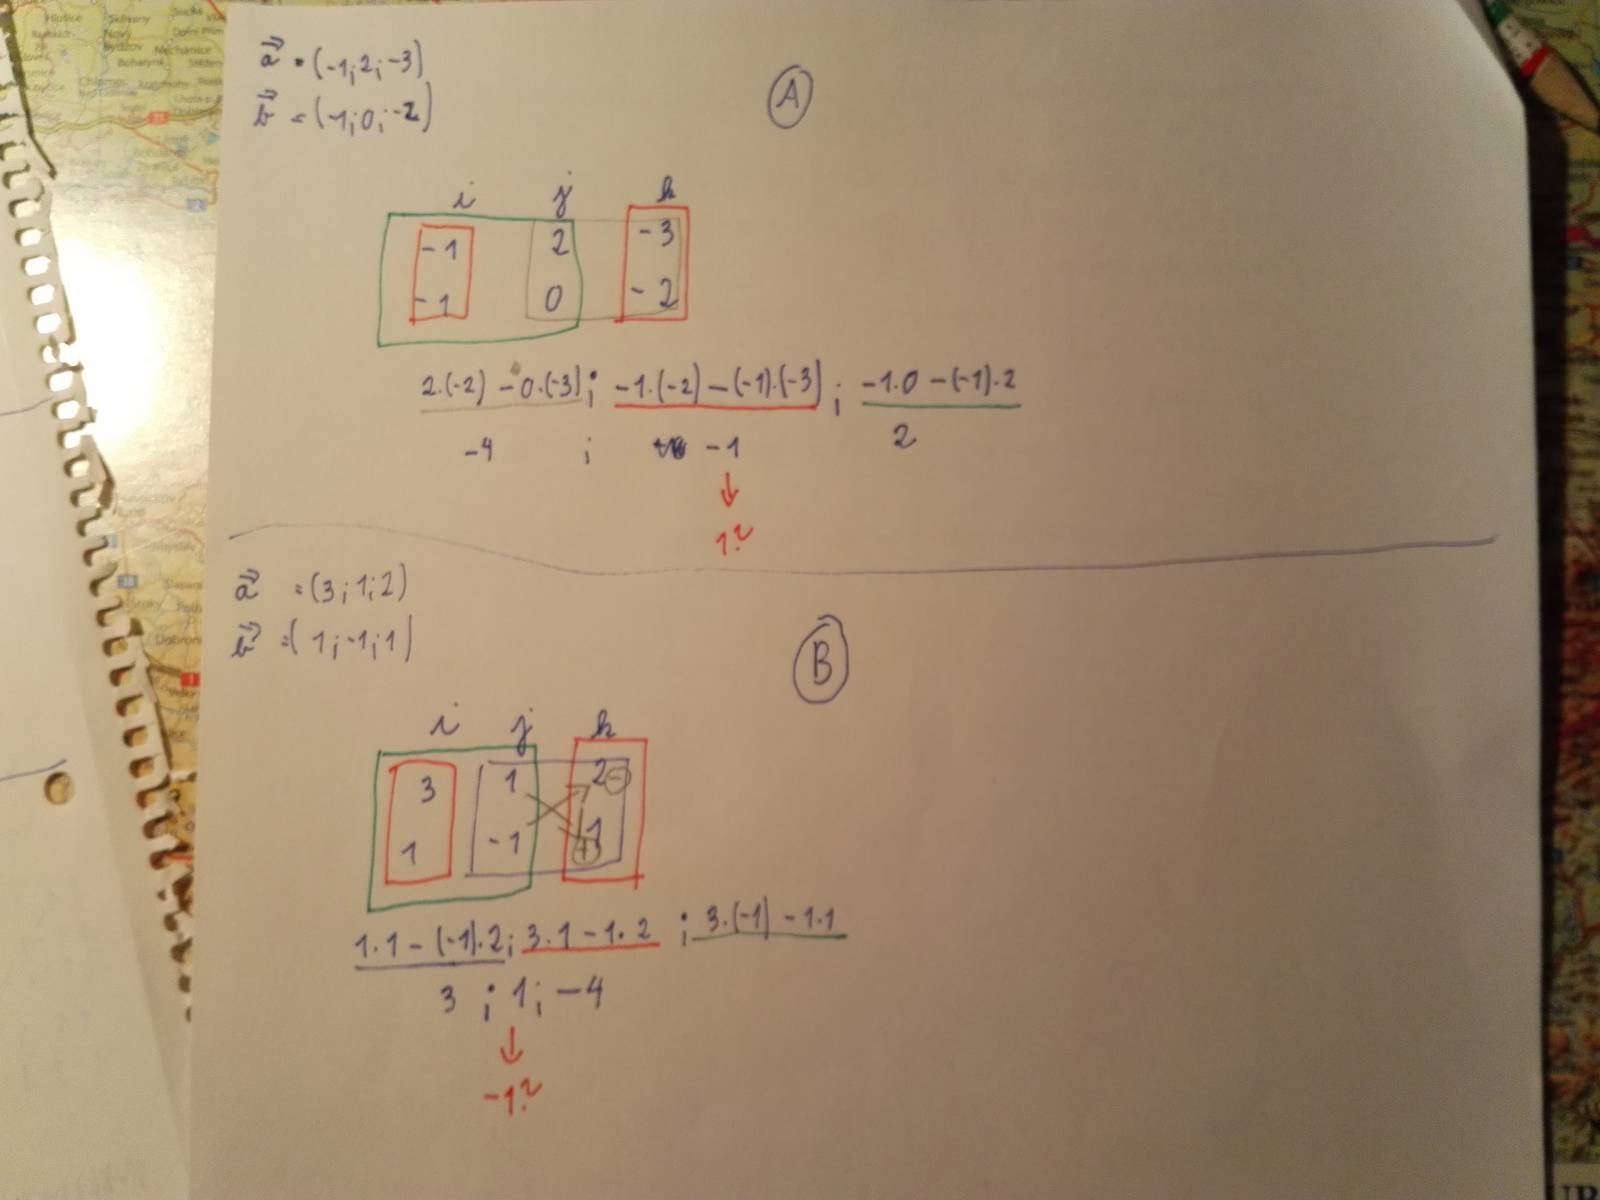 a⃗ = (-1; 2; -3)
b⃗ = (-1; 0; -2)
A
i j k
-1 2 -3
-1 0 -2
2·(-2) - 0·(-3) ; -1·(-2) - (-1)·(-3) ; -1·0 - (-1)·2
-4 ; -1 2
↓
1?
a⃗ = (3; 1; 2)
b⃗ = (1; -1; 1)
B
i j k
3 1 2 -
1 -1 1 +
1·1 - (-1)·2 ; 3·1 - 1·2 ; 3·(-1) - 1·1
3 ; 1 ; -4
↓
-1?